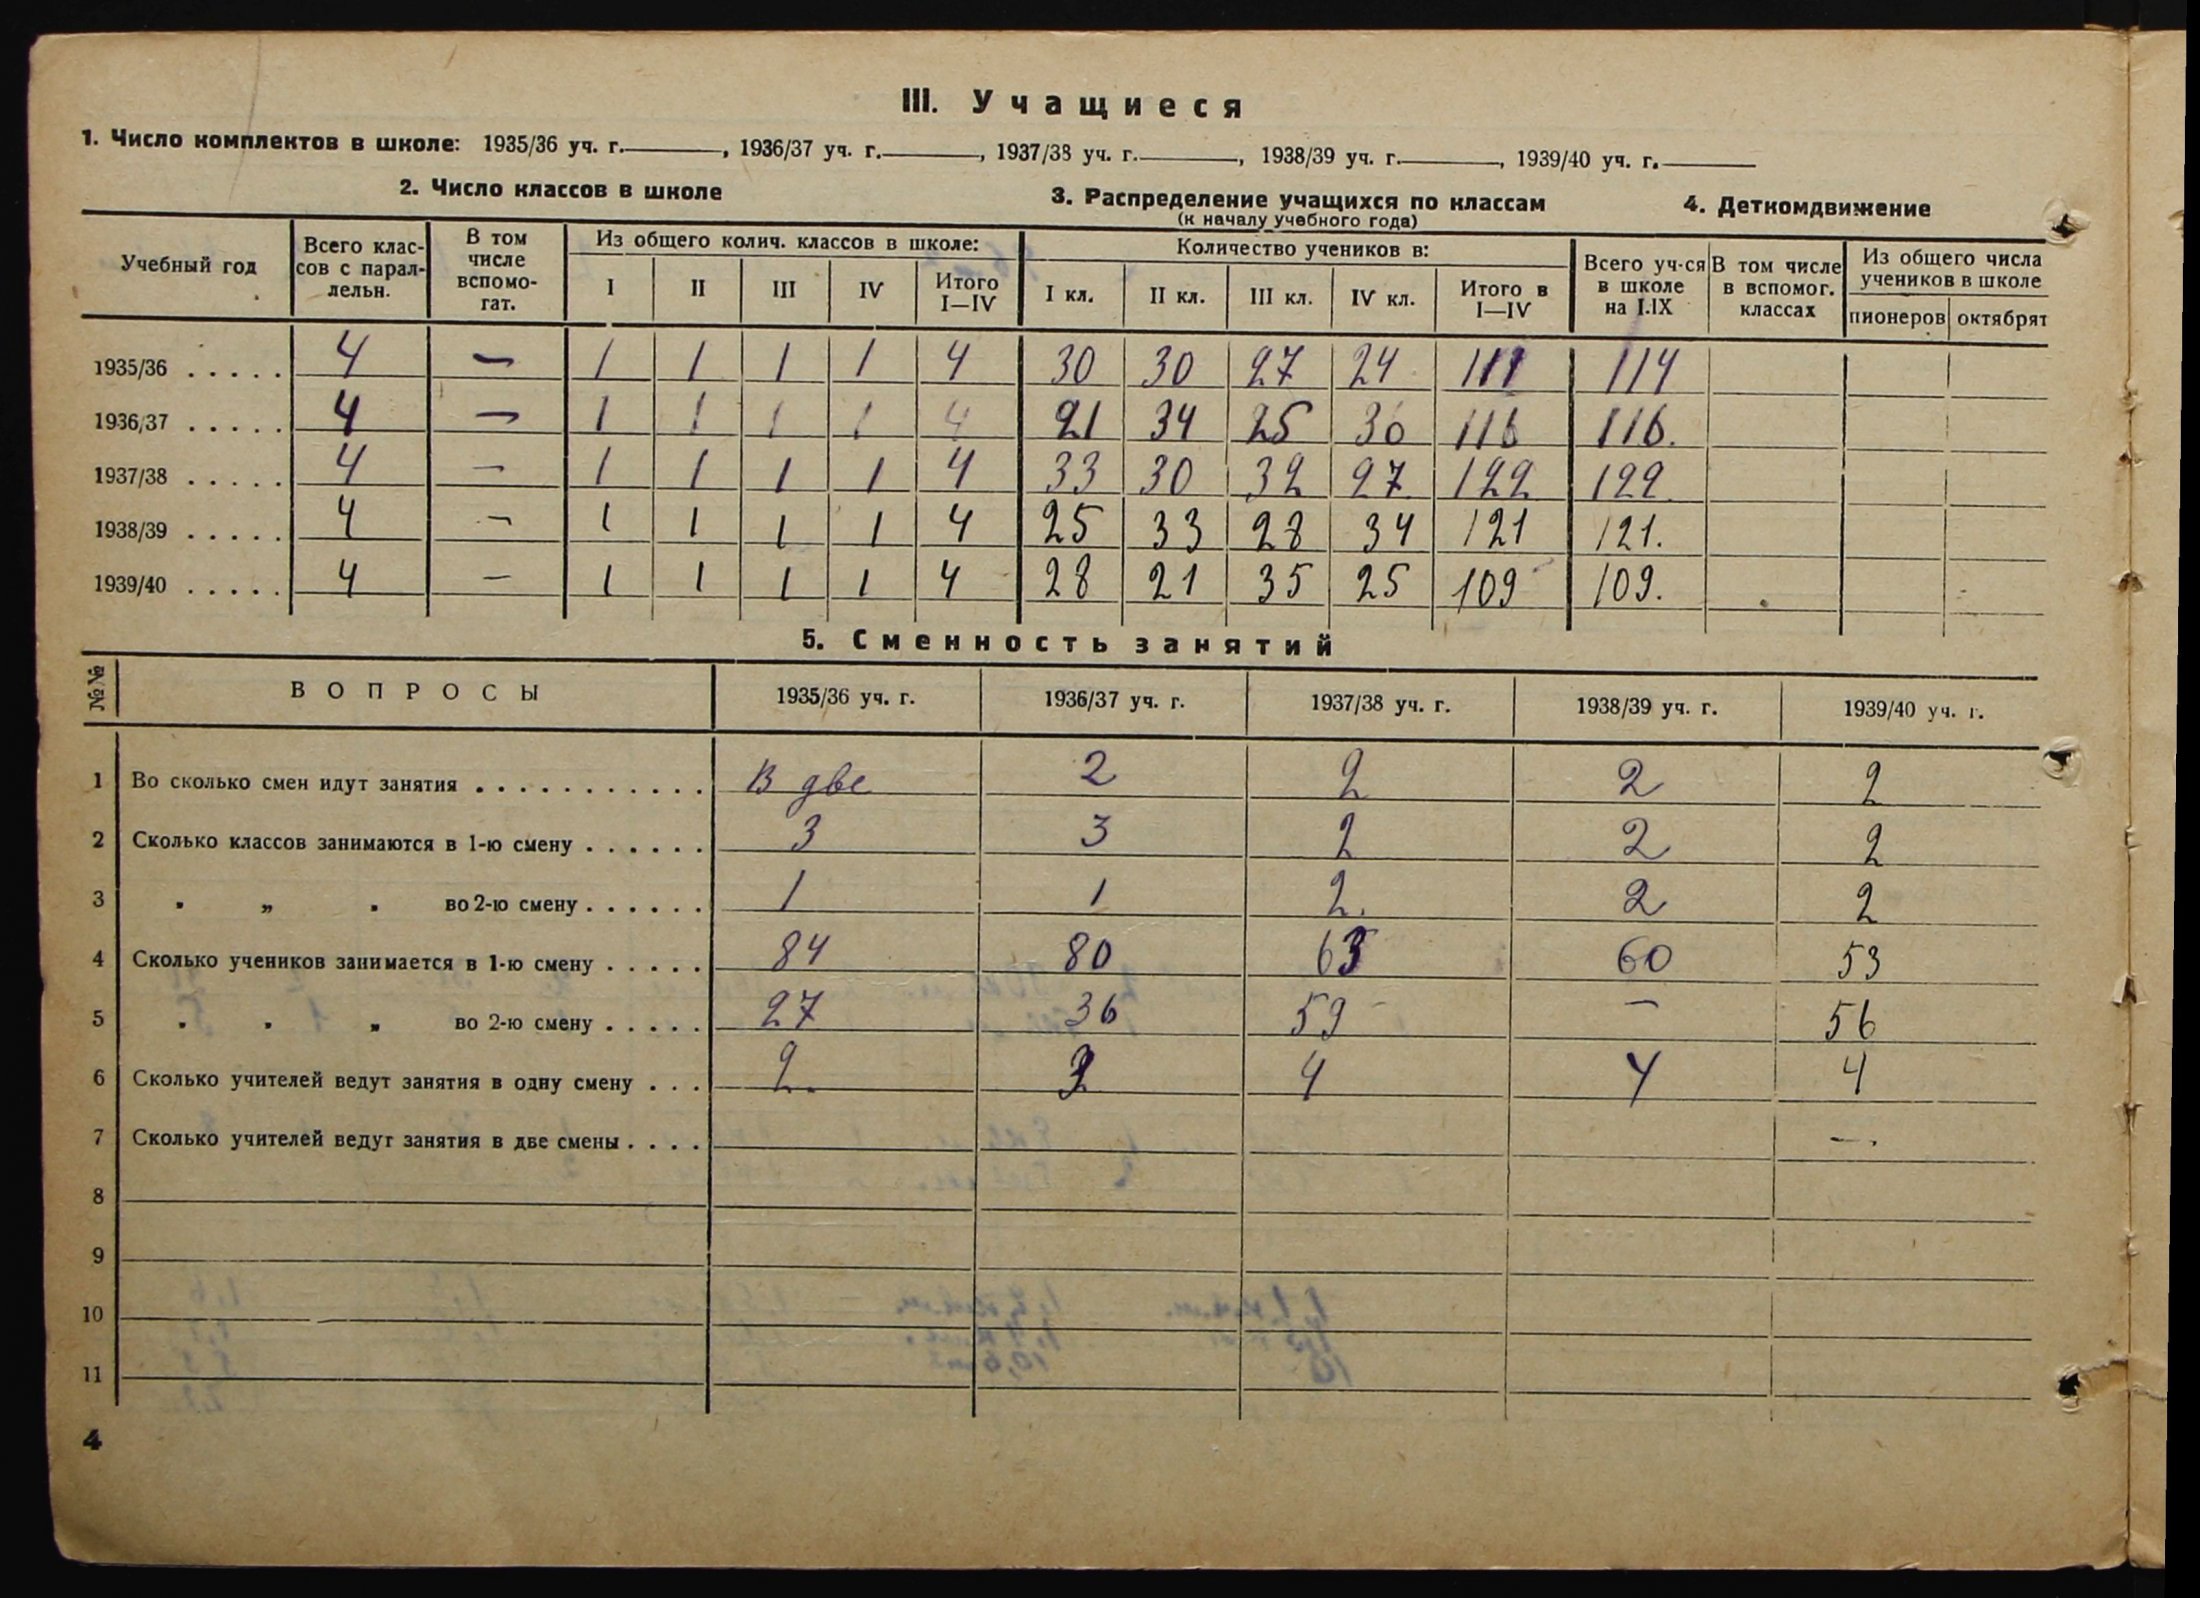 III. Учащиеся
1. Число комплектов в школе: 1935/36 уч. г. , 1936/37 уч. г. , 1937/38 уч. г. , 1938/39 уч. г. , 1939/40 уч. г.
2. Число классов в школе 3. Распределение учащихся по классам 4. Деткомдвижение
(к началу учебного года)
Учебный год Всего классов с параллельн. В том числе вспомогат. Из общего колич. классов в школе: Количество учеников в: Всего уч-ся в школе на I.IX В том числе в вспомог. классах Из общего числа учеников в школе
I II III IV Итого I—IV I кл. II кл. III кл. IV кл. Итого в I—IV пионеров октябрят
1935/36 . . . . . 4 — 1 1 1 1 4 30 30 27 24 111 114
1936/37 . . . . . 4 — 1 1 1 1 4 21 34 25 36 116 116.
1937/38 . . . . . 4 — 1 1 1 1 4 33 30 32 27 122 122
1938/39 . . . . . 4 — 1 1 1 1 4 25 33 28 34 121 121.
1939/40 . . . . . 4 — 1 1 1 1 4 28 21 35 25 109 109.
5. Сменность занятий
№№ ВОПРОСЫ 1935/36 уч. г. 1936/37 уч. г. 1937/38 уч. г. 1938/39 уч. г. 1939/40 уч. г.
1 Во сколько смен идут занятия . . . . . . . . . . . В две 2 2 2 2
2 Сколько классов занимаются в 1-ю смену . . . . . . 3 3 2 2 2
3 " " " во 2-ю смену . . . . . . 1 1 2. 2 2
4 Сколько учеников занимается в 1-ю смену . . . . . 84 80 63 60 53
5 " " " во 2-ю смену . . . . . 27 36 59 — 56
6 Сколько учителей ведут занятия в одну смену . . . 2. 4 4 4
7 Сколько учителей ведут занятия в две смены . . . . —.
8
9
10
11
4